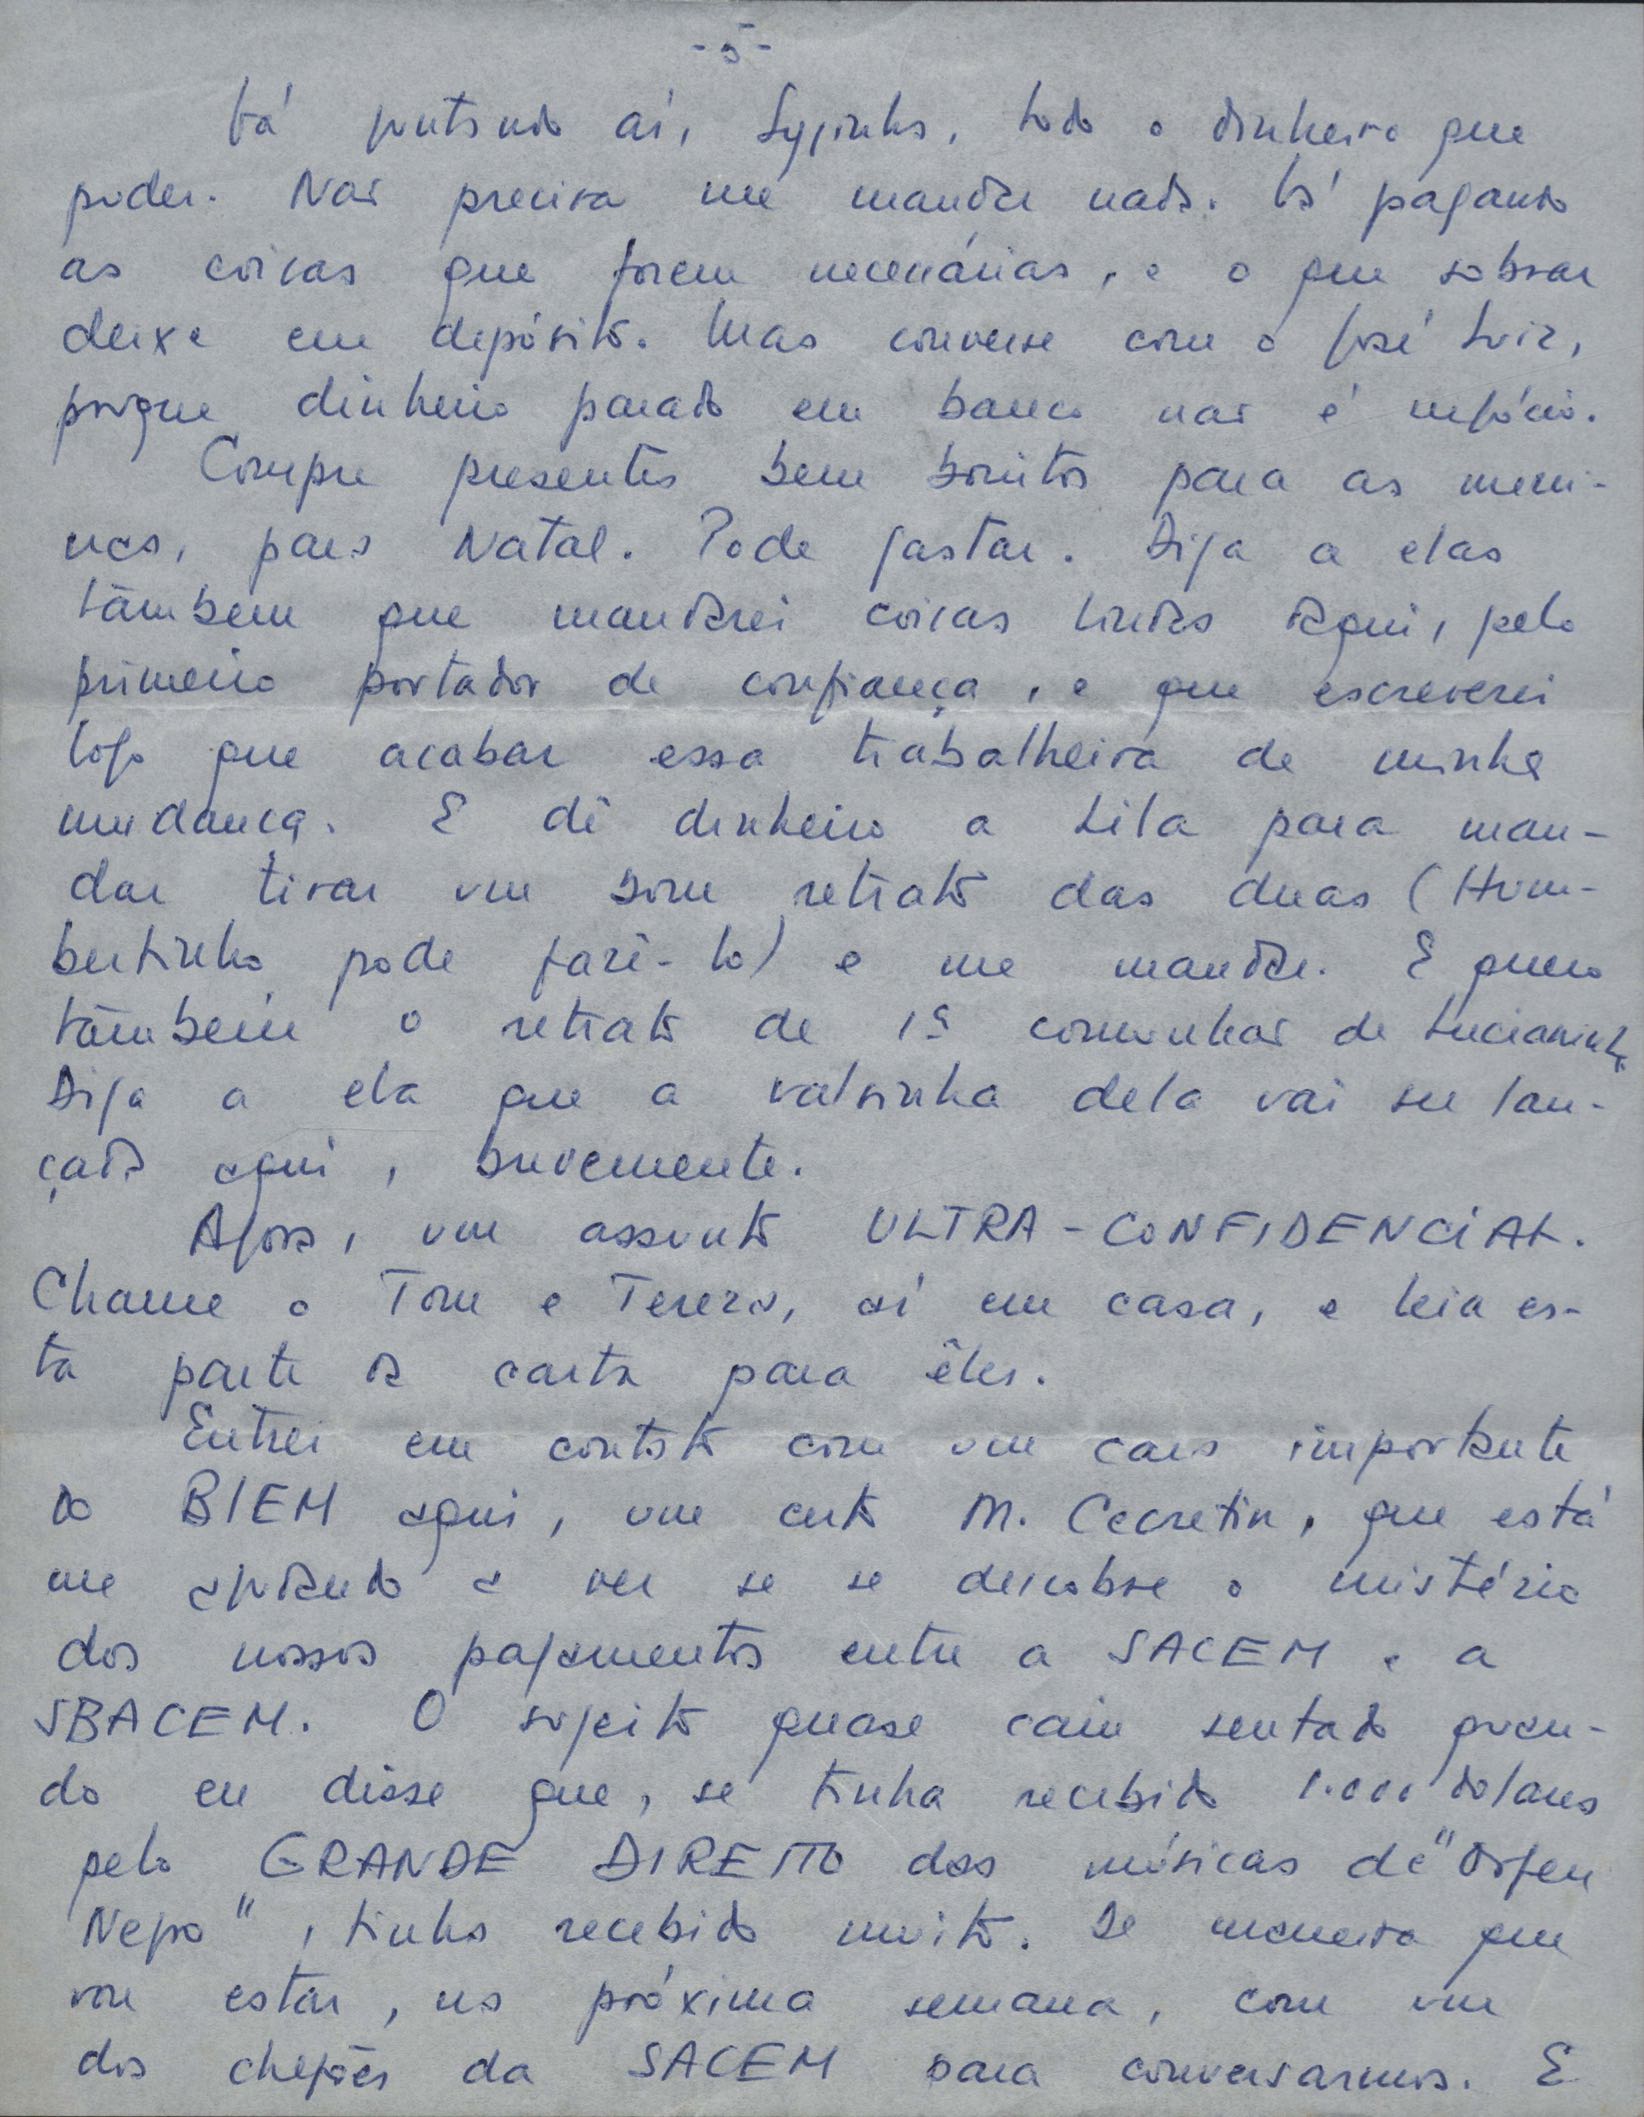 - 5 -
Vá juntando aí, Lyginha, todo o dinheiro que
puder. Não precisa me mandar nada. Vá pagando
as coisas que forem necessárias, e o que sobrar
deixe em depósito. Mas converse com o José Luiz,
porque dinheiro parado em banco não é negócio.
Compre presentes bem bonitos para as meni-
nas, para Natal. Pode gastar. Diga a elas
também que mandarei coisas lindas daqui, pelo
primeiro portador de confiança, e que escreverei
logo que acabar essa trabalheira de minha
mudança. E dê dinheiro a Lila para man-
dar tirar um bom retrato das duas (Hum-
bertinho pode fazê-lo) e me mandar. E quero
também o retrato de 1ª comunhão de Lucianinha
Diga a ela que a valsinha dela vai ser lan-
çada aqui, brevemente.
Agora, um assunto ULTRA-CONFIDENCIAL.
Chame o Tom e Tereza, aí em casa, e leia es-
ta parte da carta para êles.
Entrei em contato com um cara importante
do BIEM aqui, um certo M. Cecretin, que está
me ajudando a ver se se descobre o mistério
dos nossos pagamentos entre a SACEM e a
SBACEM. O sujeito quase caiu sentado quan-
do eu disse que, se tinha recebido 1.000 dolares
pelo GRANDE DIREITO das músicas de "Orfeu
Negro", tinha recebido muito. De maneira que
vou estar, na próxima semana, com um
dos chefões da SACEM para conversarmos. E